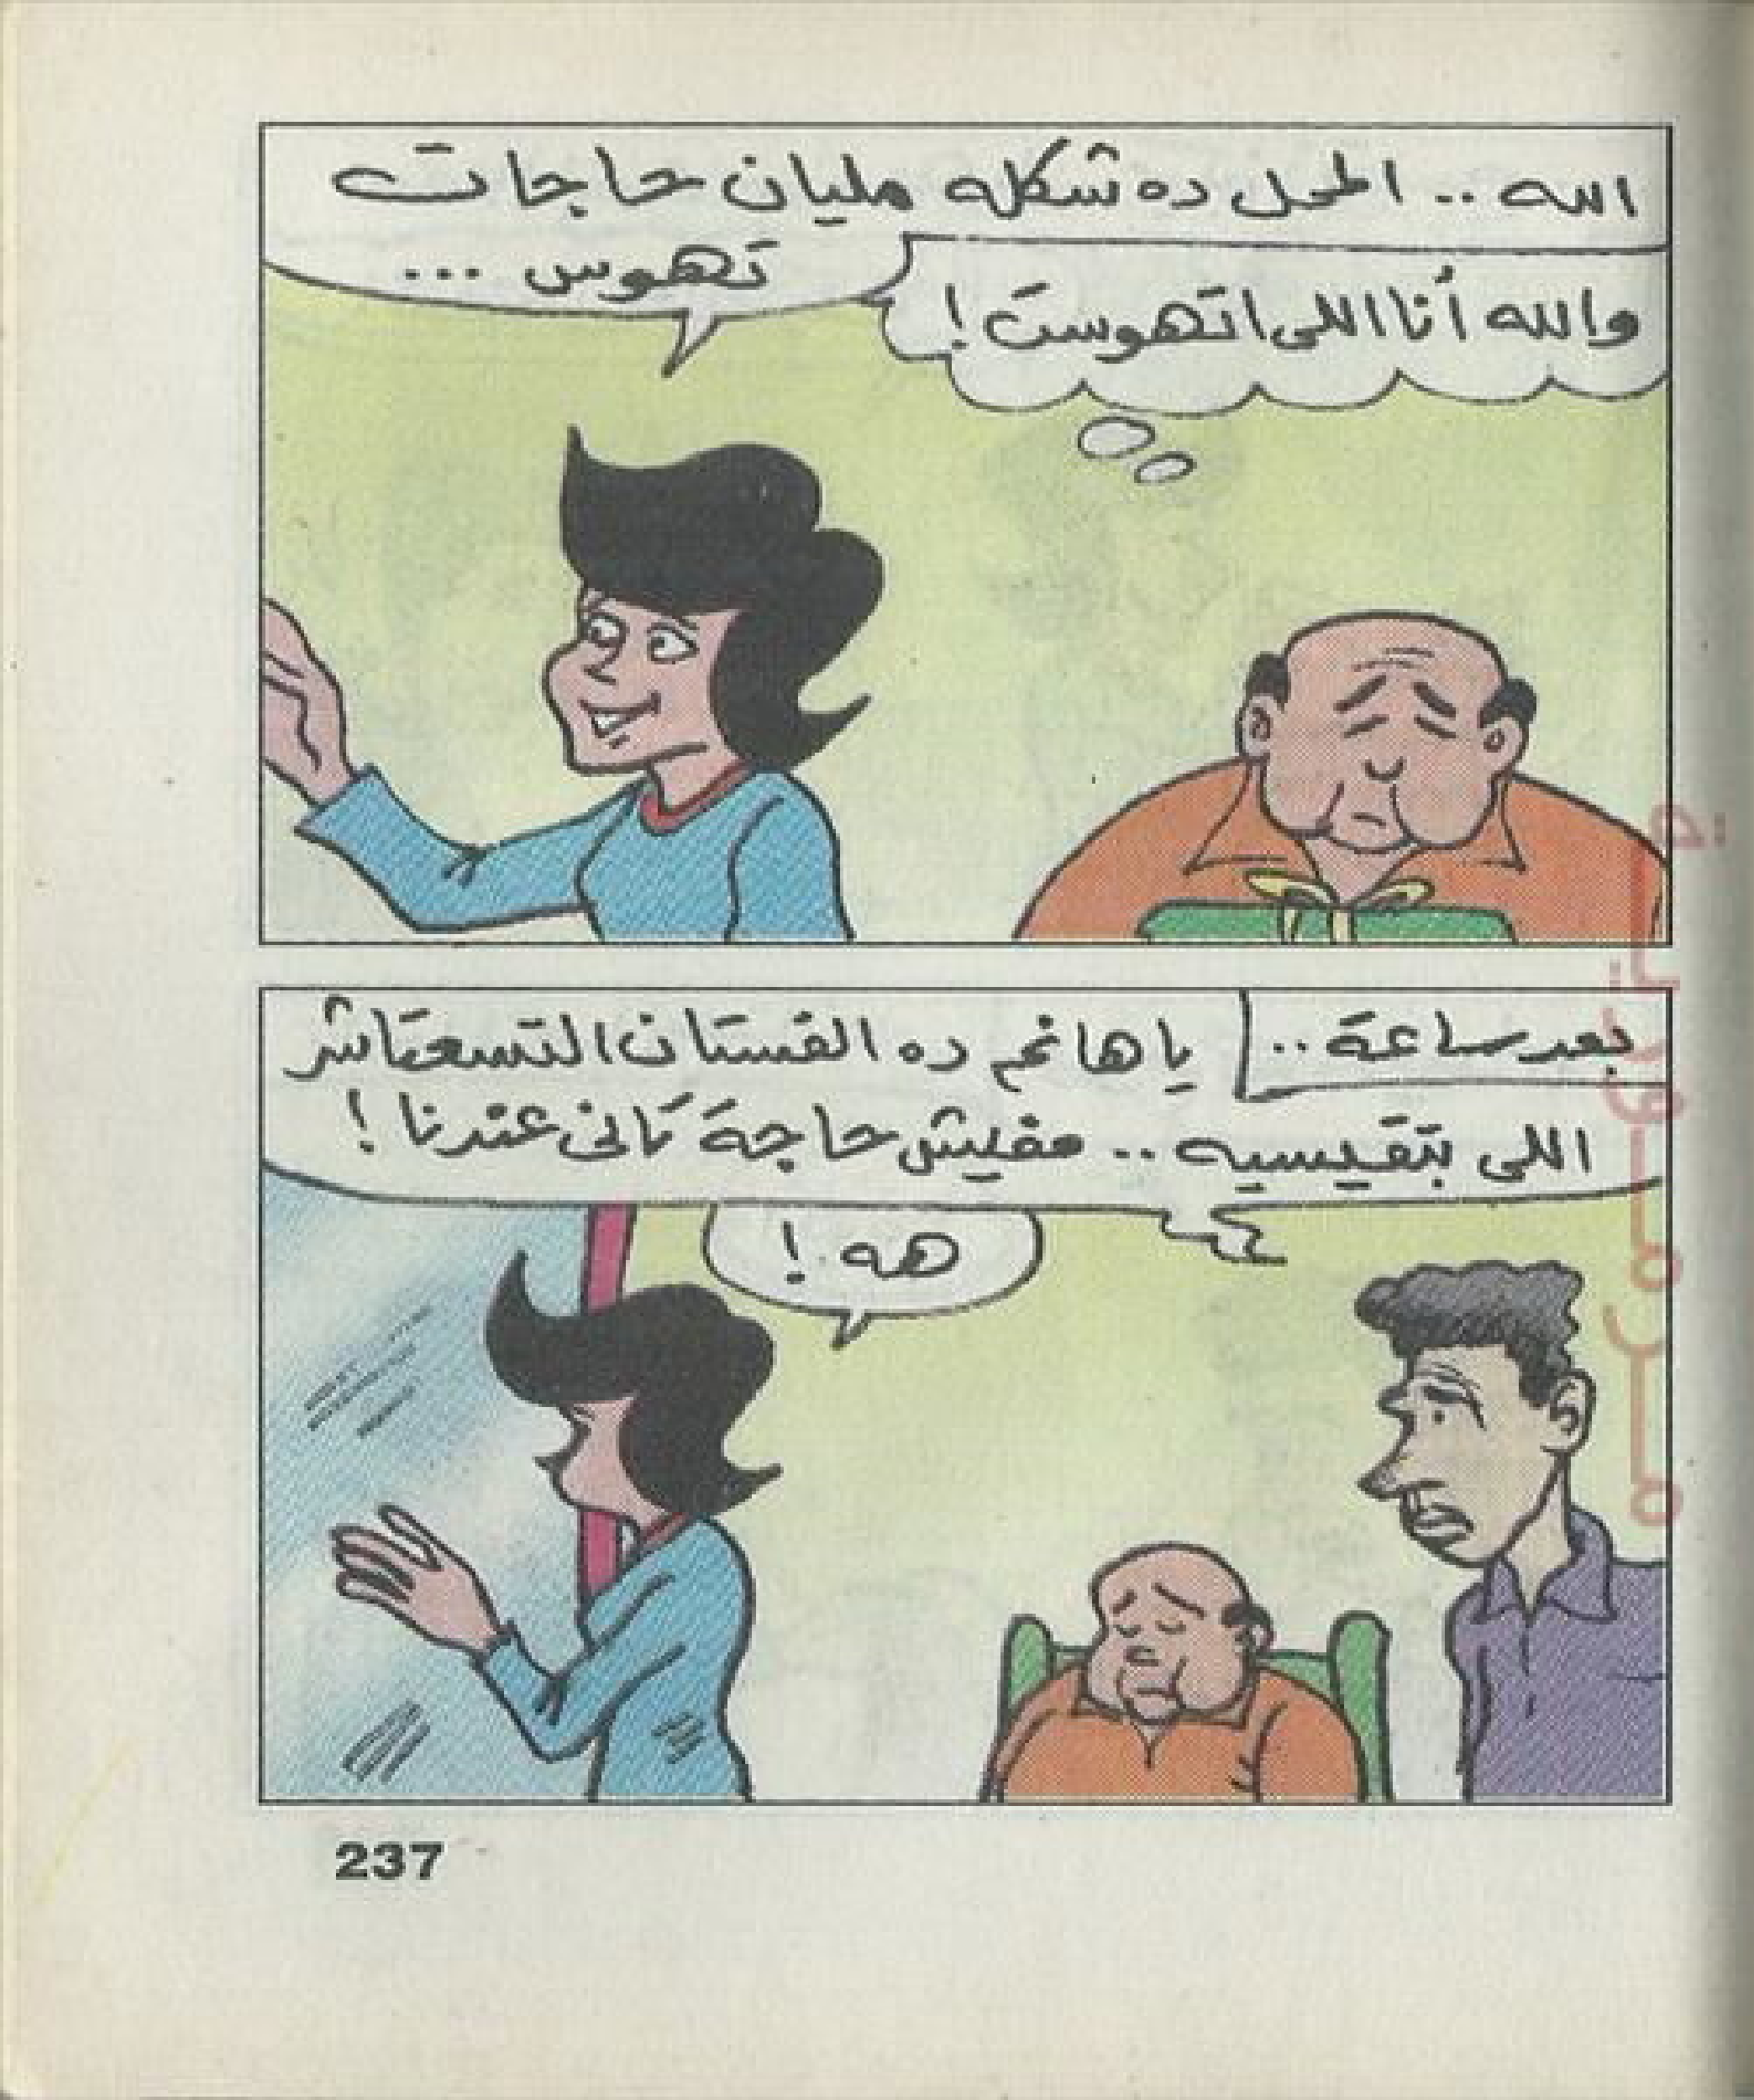 الله .. المحل ده شكله مليان حاجات
تهوس ...
والله أنا اللى اتهوست !
بعد ساعة ..
يا هانم ده الفستان التسعتاشر
اللى بتقيسيه .. مفيش حاجة تانى عندنا !
هه !
237